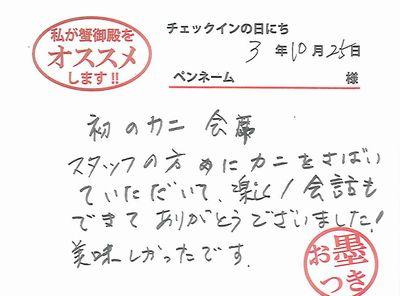 私が蟹御殿を
オススメ
します!!
チェックインの日にち
3 年 10 月 25 日
ペンネーム 様
初のカニ会席
スタッフの方めにカニをさばい
ていただいて、楽しく会話も
できてありがとうございました!
美味しかったです。
お墨
つき